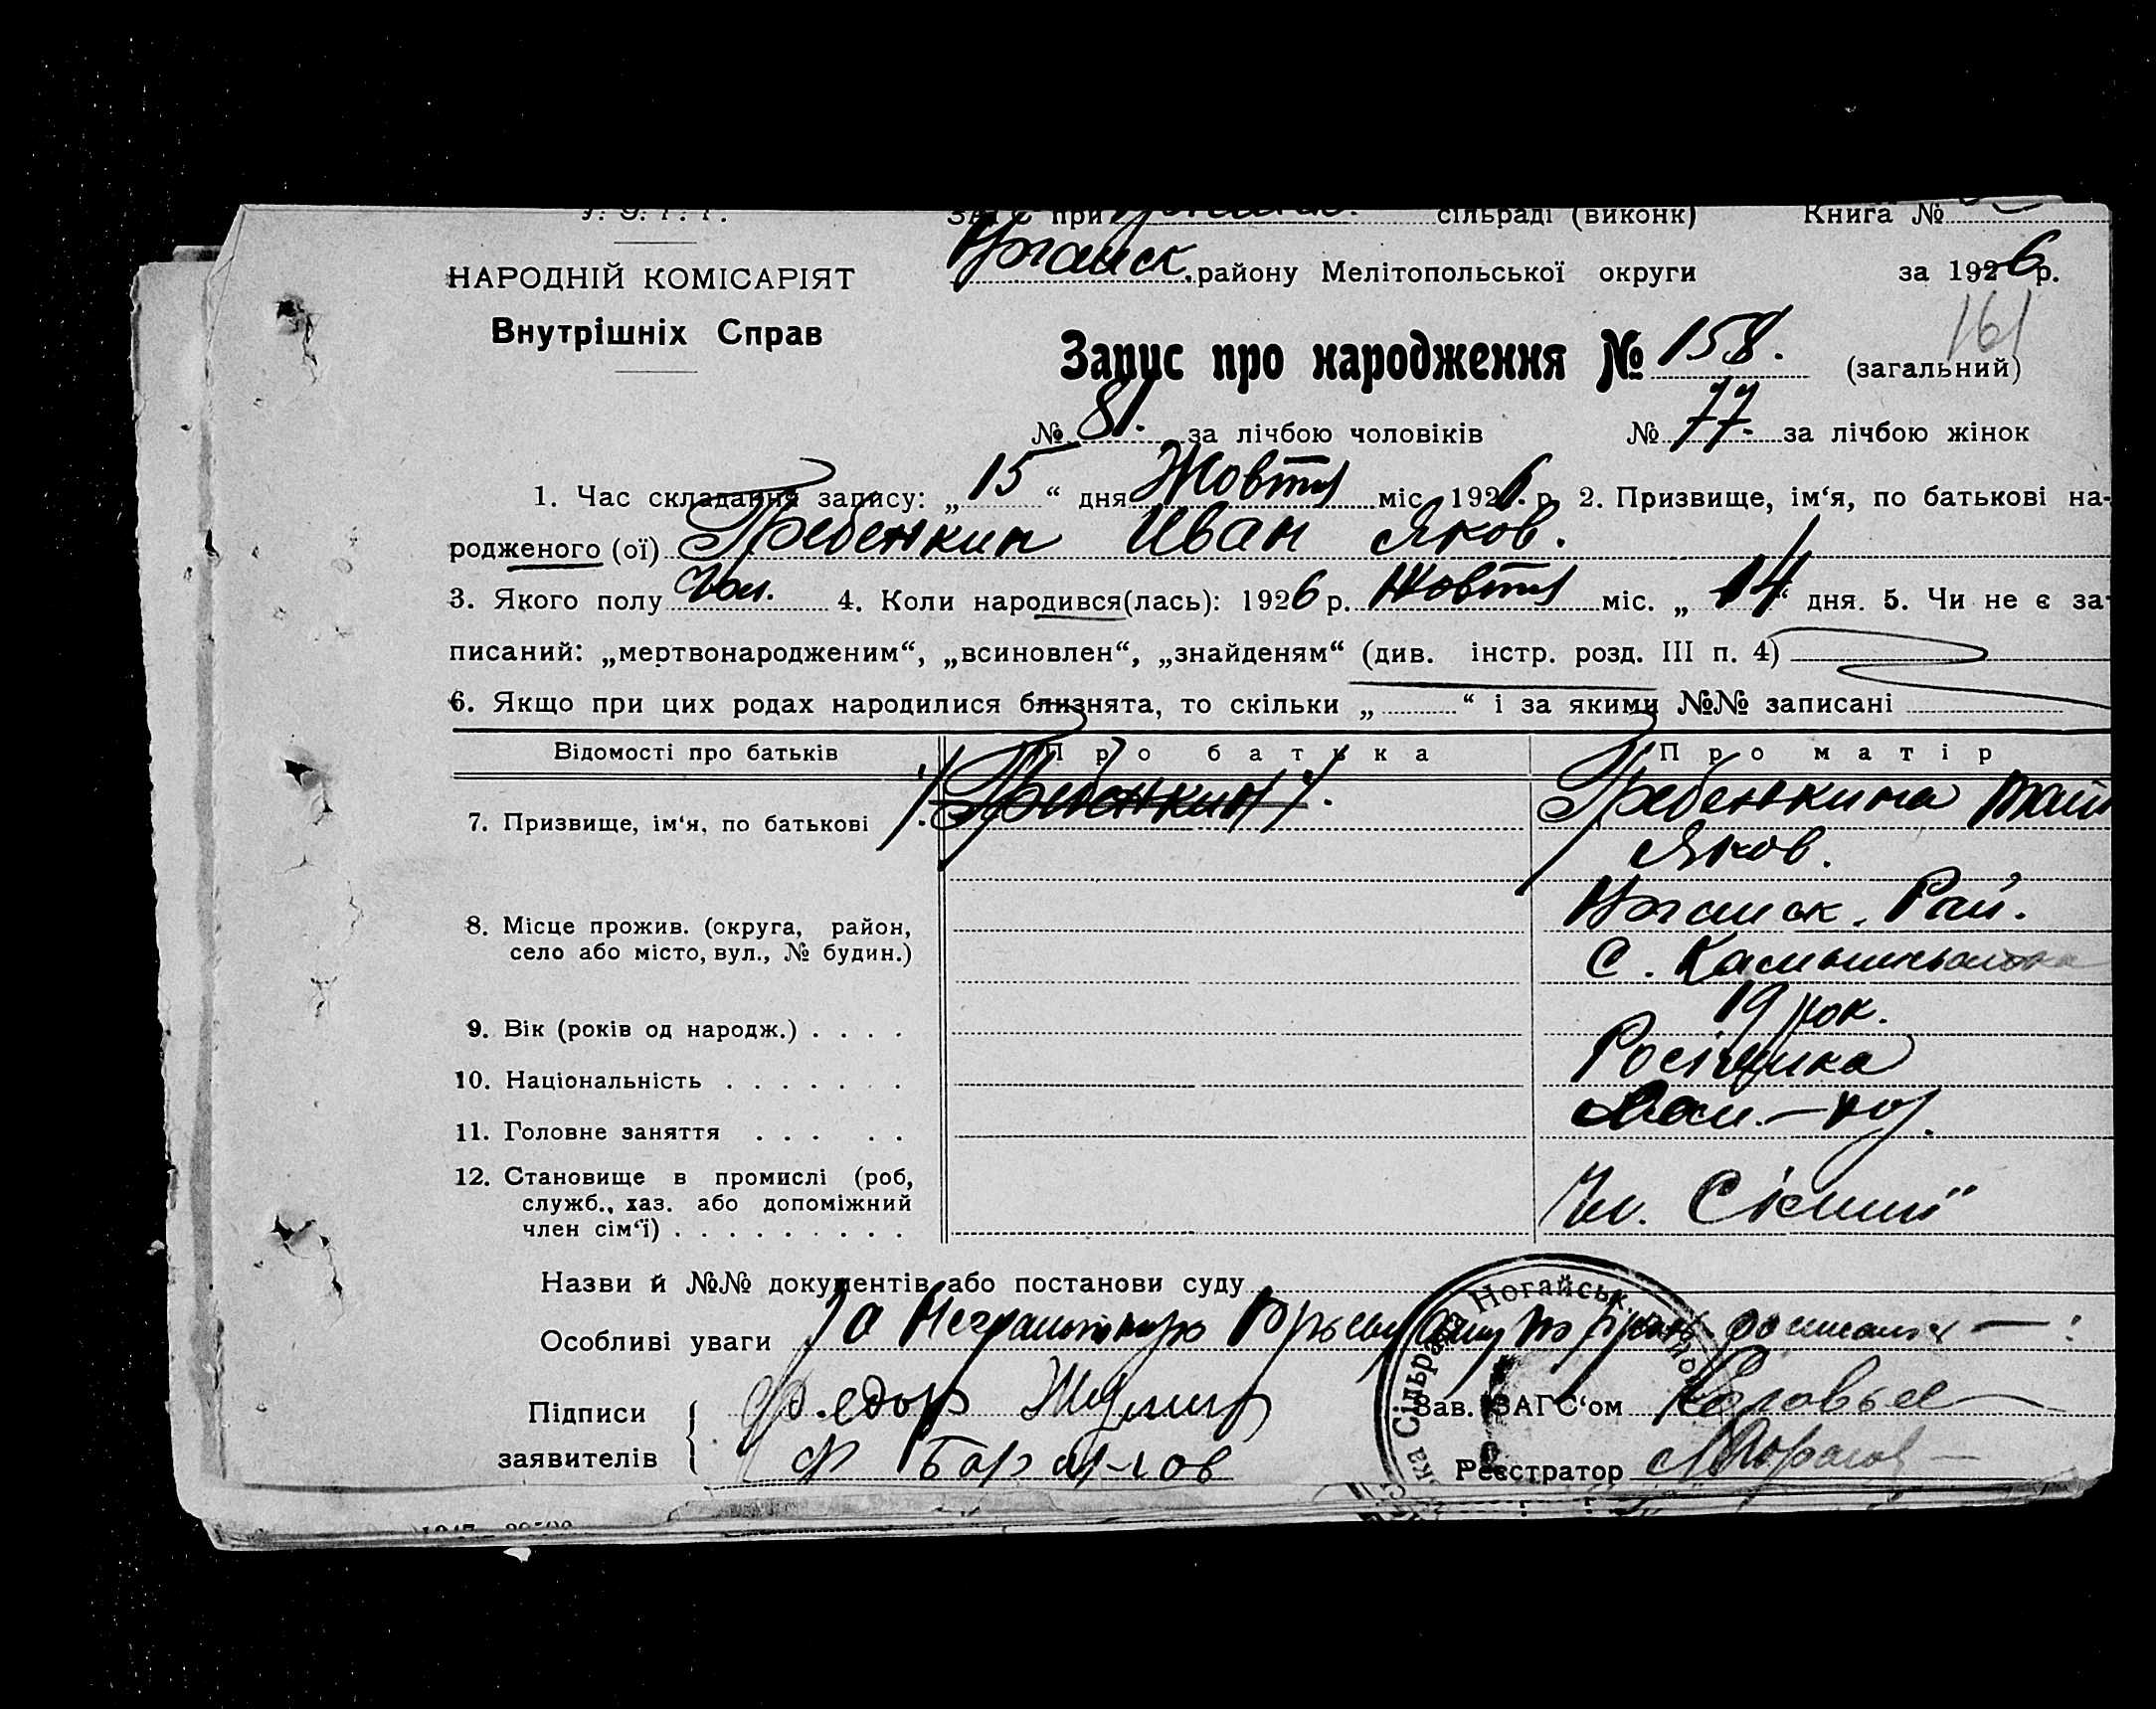 У. С. Р. Р.
ЗАГС при сільраді (виконк) Книга №
НАРОДНІЙ КОМІСАРІЯТ
Внутрішніх Справ
Ногайск. району Мелітопольської округи за 1926 р.
161
Запис про народження № 158. (загальний)
№ 81. за лічбою чоловіків № 77. за лічбою жінок
1. Час складання запису: „15“ дня Жовтня міс. 1926 р. 2. Призвище, ім‘я, по батькові на-
родженого (ої) Гребенкин Иван Яков.
3. Якого полу Чол. 4. Коли народився(лась): 1926 р. Жовтня міс. „14“ дня. 5. Чи не є за-
писаний: „мертвонародженим“, „всиновлен“, „знайденям“ (див. інстр. розд. III п. 4)
6. Якщо при цих родах народилися близнята, то скільки „ “ і за якими №№ записані
Відомості про батьків Про батька Про матір
7. Призвище, ім‘я, по батькові Гребенкин Гребенкина
Яков.
8. Місце прожив. (округа, район, Ногайск. Рай.
село або місто, вул., № будин.) С.
9. Вік (років од народж.) 19 рок.
10. Національність Росіянка
11. Головне заняття
12. Становище в промислі (роб, служб., хаз. або допоміжний член сім‘ї) Чл. Сімии
Назви й №№ документів або постанови суду
Особливі уваги За Неграмотную
Підписи заявителів Федор
Зав. ЗАГС‘ом
Ф
Реєстратор
Сільрада Ногайськ. район